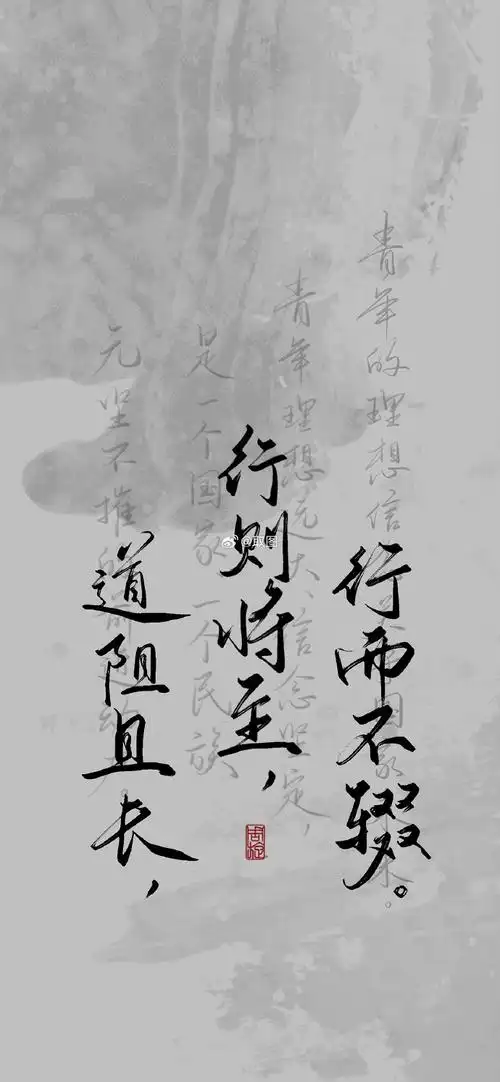 道阻且长，
行则将至，
行而不辍。
青年的理想信
青年理想远大、信念坚定，
是一个国家、一个民族
无坚不摧
@取图